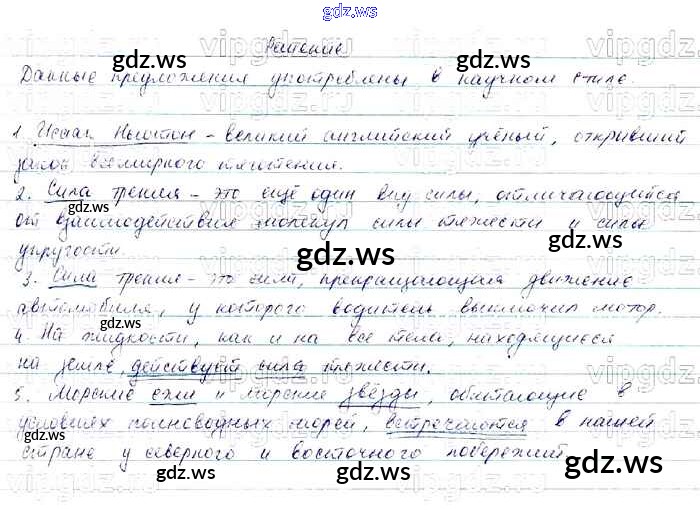 gdz.ws
Решение
Данные предложения употреблены в научном стиле.
1. Исаак Ньютон – великий английский учёный, открывший
закон всемирного тяготения.
2. Сила трения – это ещё один вид силы, отличающийся
от взаимодействия молекул силы тяжести и силы
упругости.
3. Сила трения – это сила, прекращающая движение
автомобиля, у которого водитель выключил мотор.
4. На жидкости, как и на все тела, находящиеся
на земле, действует сила тяжести.
5. Морские ежи и морские звёзды, обитающие в
условиях полноводных морей, встречаются в нашей
стране у северного и восточного побережий